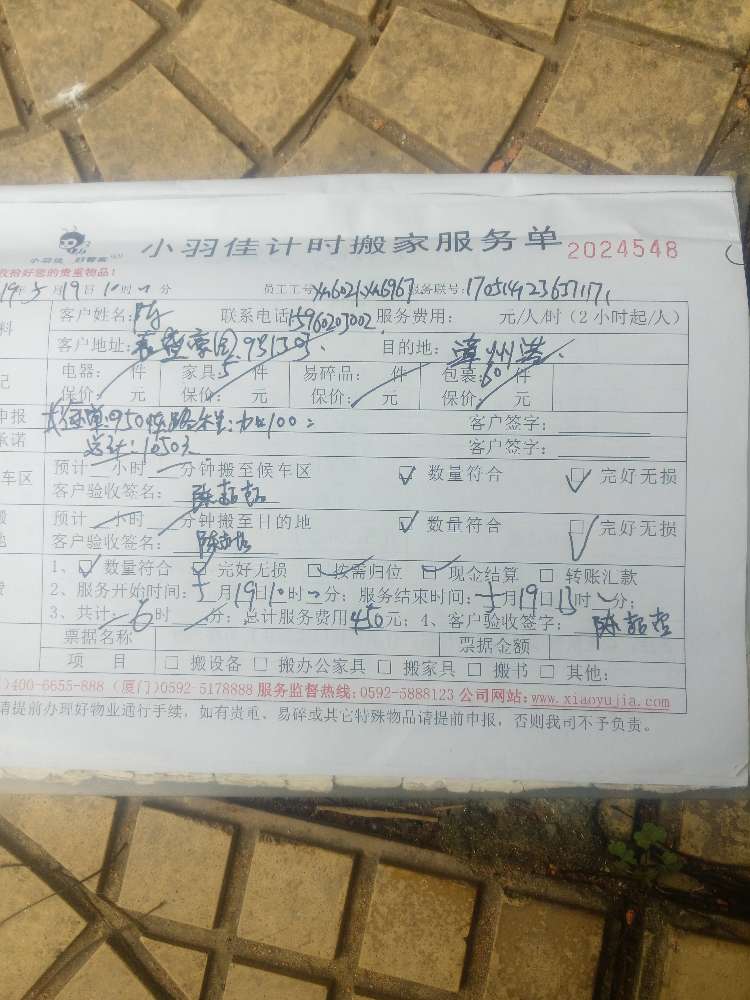 小羽佳 好管家
小羽佳计时搬家服务单 2024548
收拾好您的贵重物品!
月19日10时 分 员工工号 服务联号:
客户姓名:陈 联系电话15960203002 服务费用: 元/人/时(2小时起/人)
客户地址: 目的地:漳州港
电器: 件 家具:5件 易碎品: 件 包裹:60件
保价: 元 保价: 元 保价: 元 保价: 元
申报 950 100 客户签字:
承诺 总计:1050元 客户签字:
车区 预计 小时 分钟搬至候车区 数量符合 完好无损
客户验收签名:
预计 小时 分钟搬至目的地 数量符合 完好无损
客户验收签名:
1、 数量符合 完好无损 按需归位 现金结算 转账汇款
2、服务开始时间:5月19日10时 分;服务结束时间:5月19日13时 分;
3、共计: 6时 分;总计服务费用 元;4、客户验收签字:
票据名称 票据金额
项 目 搬设备 搬办公家具 搬家具 搬书 其他:
)400-6655-888 (厦门)0592-5178888 服务监督热线:0592-5888123 公司网站:www.xiaoyujia.com
请提前办理好物业通行手续,如有贵重、易碎或其它特殊物品请提前申报,否则我司不予负责。